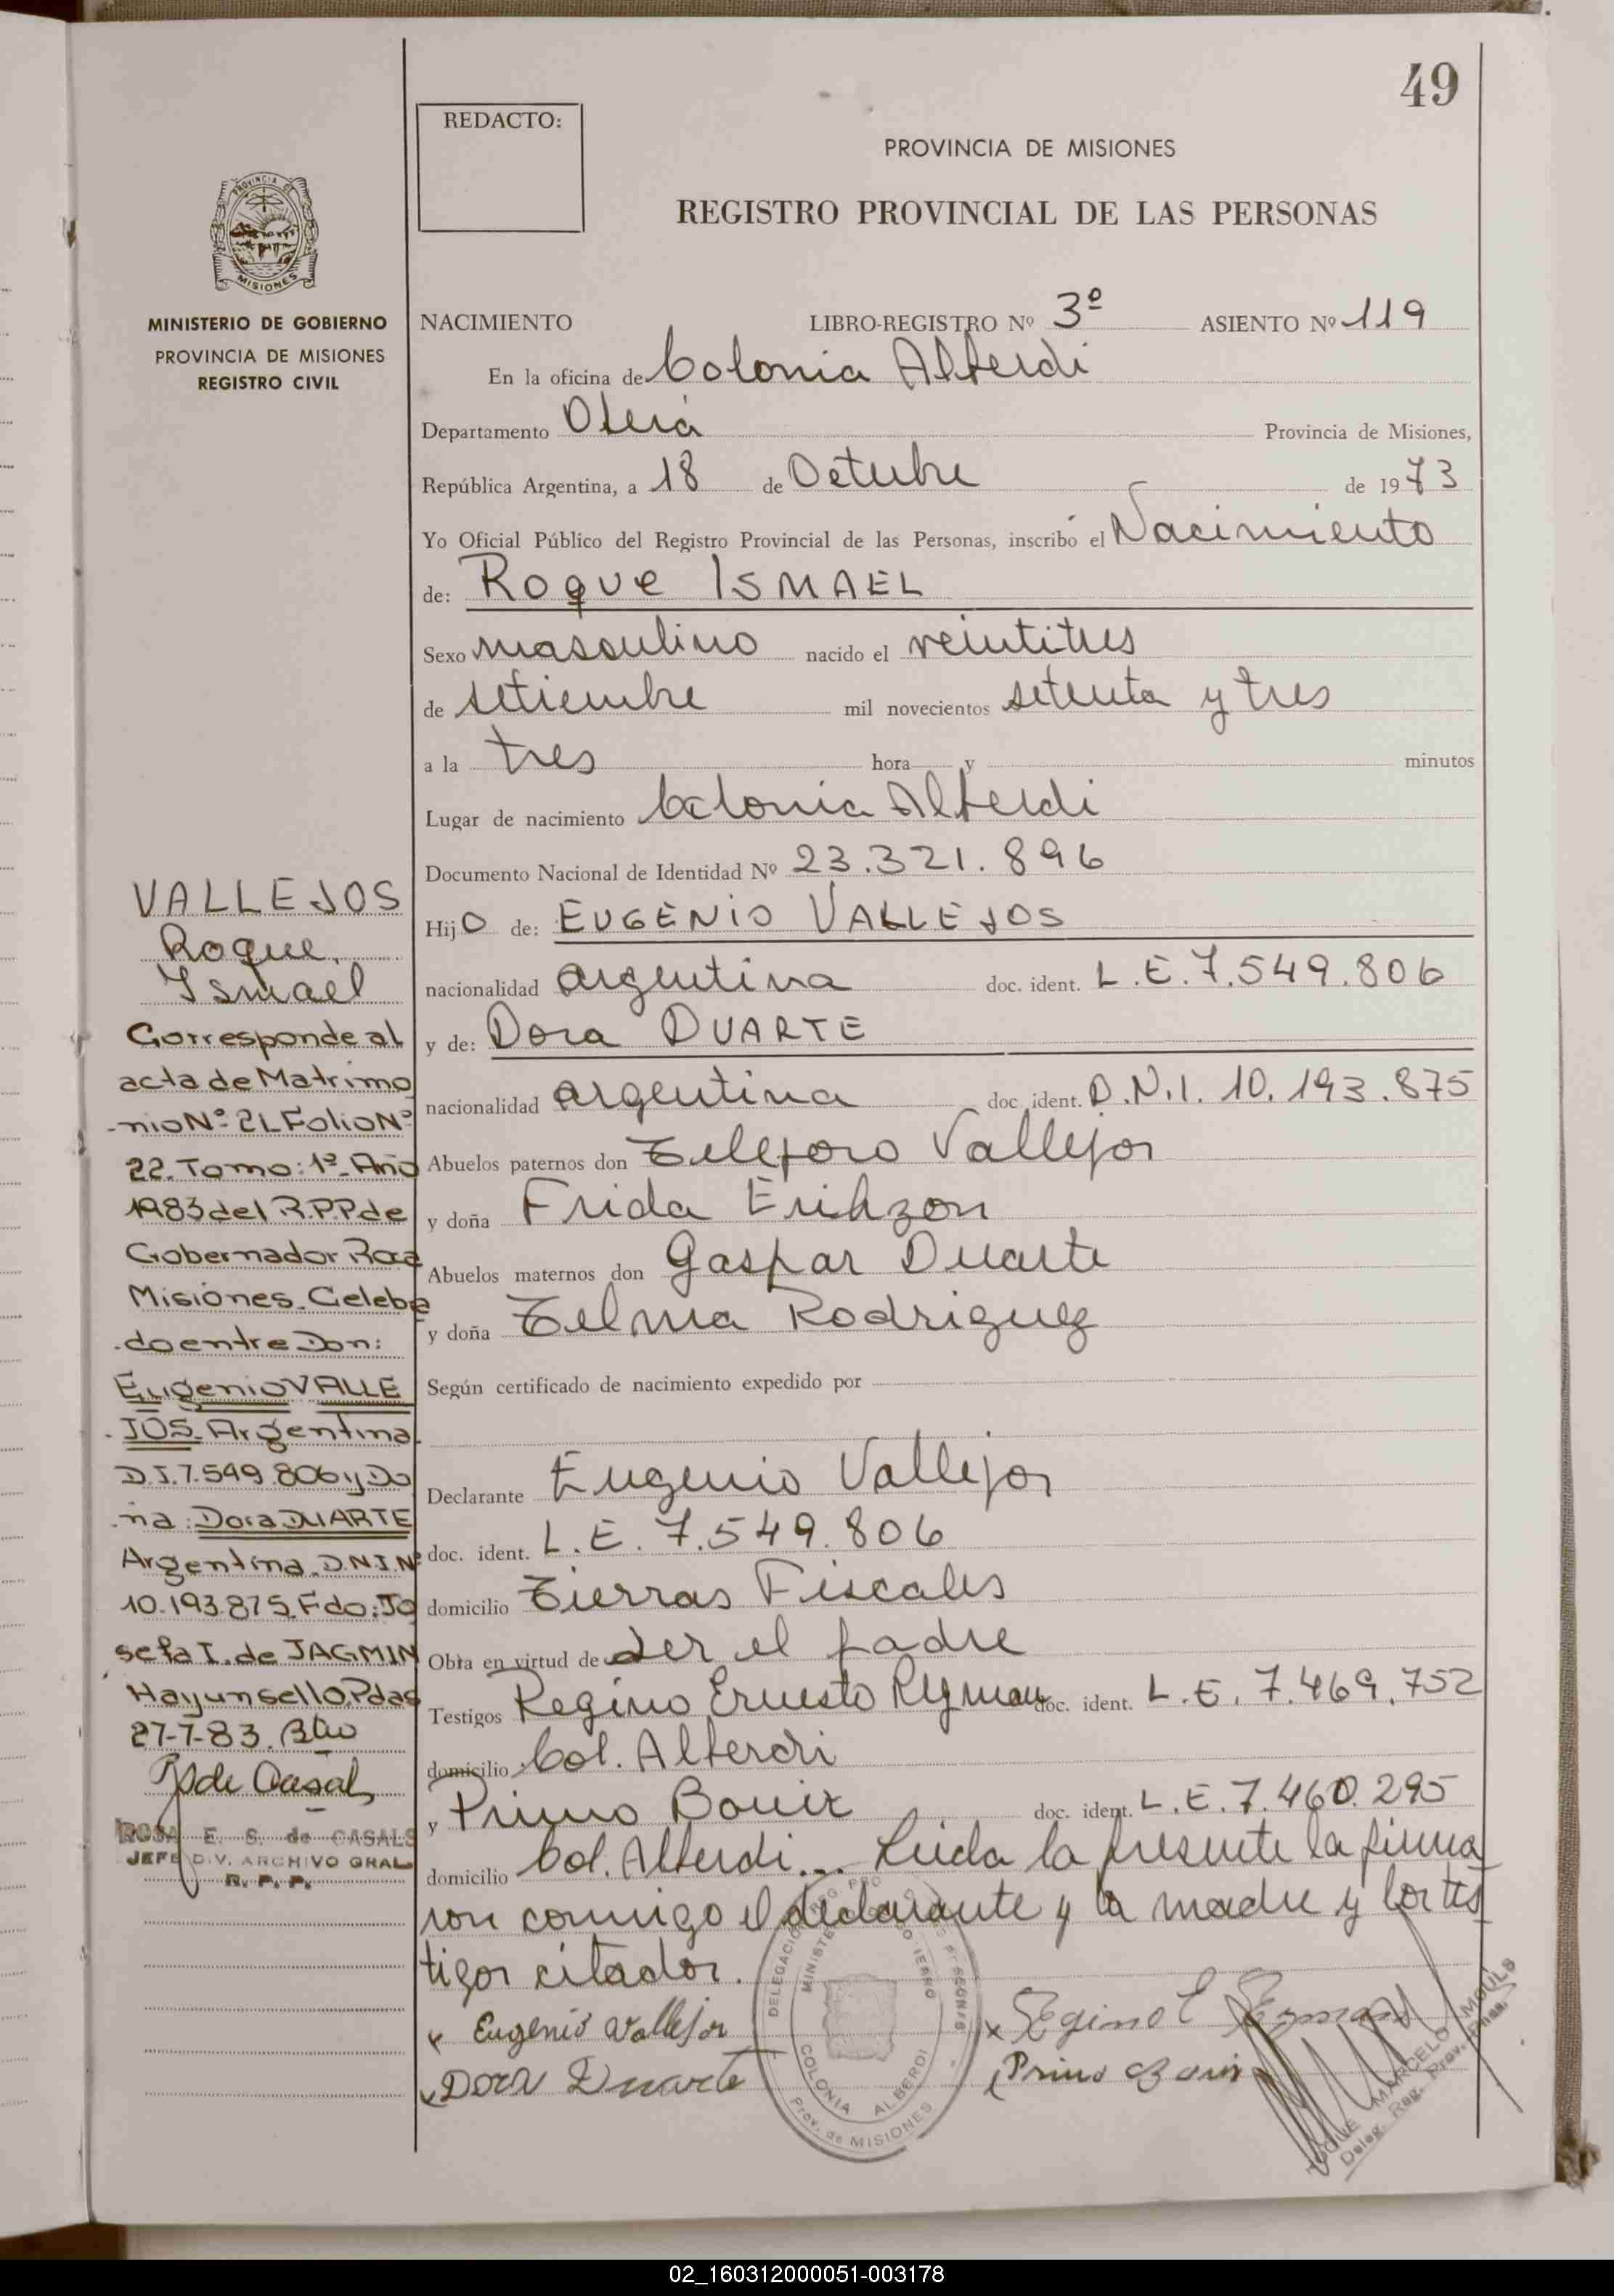 49
REDACTO:
PROVINCIA DE MISIONES
REGISTRO PROVINCIAL DE LAS PERSONAS
PROVINCIA DE
MISIONES
MINISTERIO DE GOBIERNO
PROVINCIA DE MISIONES
REGISTRO CIVIL
NACIMIENTO LIBRO-REGISTRO Nº 3º ASIENTO Nº 119
En la oficina de Colonia Alberdi
Departamento Oberá Provincia de Misiones,
República Argentina, a 18 de Octubre de 1973
Yo Oficial Público del Registro Provincial de las Personas, inscribo el Nacimiento
de: Roque ISMAEL
Sexo masculino nacido el veintitres
de setiembre mil novecientos setenta y tres
a la tres hora y minutos
Lugar de nacimiento Colonia Alberdi
Documento Nacional de Identidad Nº 23.321.896
Hijo de: EUGENIO VALLEJOS
nacionalidad argentina doc. ident. L.E.7.549.806
y de: Dora DUARTE
nacionalidad argentina doc. ident. D.N.I. 10.193.875
Abuelos paternos don Telesforo Vallejos
y doña Frida Erikzon
Abuelos maternos don Gaspar Duarte
y doña Telma Rodriguez
Según certificado de nacimiento expedido por
Declarante Eugenio Vallejos
doc. ident. L.E. 7.549.806
domicilio Tierras Fiscales
Obra en virtud de ser el padre
Testigos Regino Ernesto Reyman doc. ident. L.E. 7.469.752
domicilio Col. Alberdi
y Primo Bouix doc. ident. L.E. 7.460.295
domicilio Col. Alberdi... Leida la presente la firma
ron conmigo el declarante y la madre y los tes
tigos citados.
Eugenio Vallejos
Dora Duarte
Regino E
Primo
VALLEJOS
Roque
Ismael
Corresponde al
acta de Matrimo
nio Nº 21 Folio Nº
22. Tomo: 1º Año
1983 del R.P.P de
Gobernador Roca
Misiones. Celebra
do entre Don:
Eugenio VALLE
JOS. Argentina
D.I. 7.549.806 y Do
ña: Dora DUARTE
Argentina. D.N.I. Nº
10.193.875. Fdo: Jo
sefa I. de JAGMIN
Hay un sello. Pdas
27-7-83.
de Casals
ROSA E. S. de CASALS
JEFE DIV. ARCHIVO GRAL
R. P. P.
COLONIA ALBERDI
Prov. de MISIONES
MARCELO
Deleg. Reg. Prov. Pnas.
02_160312000051-003178